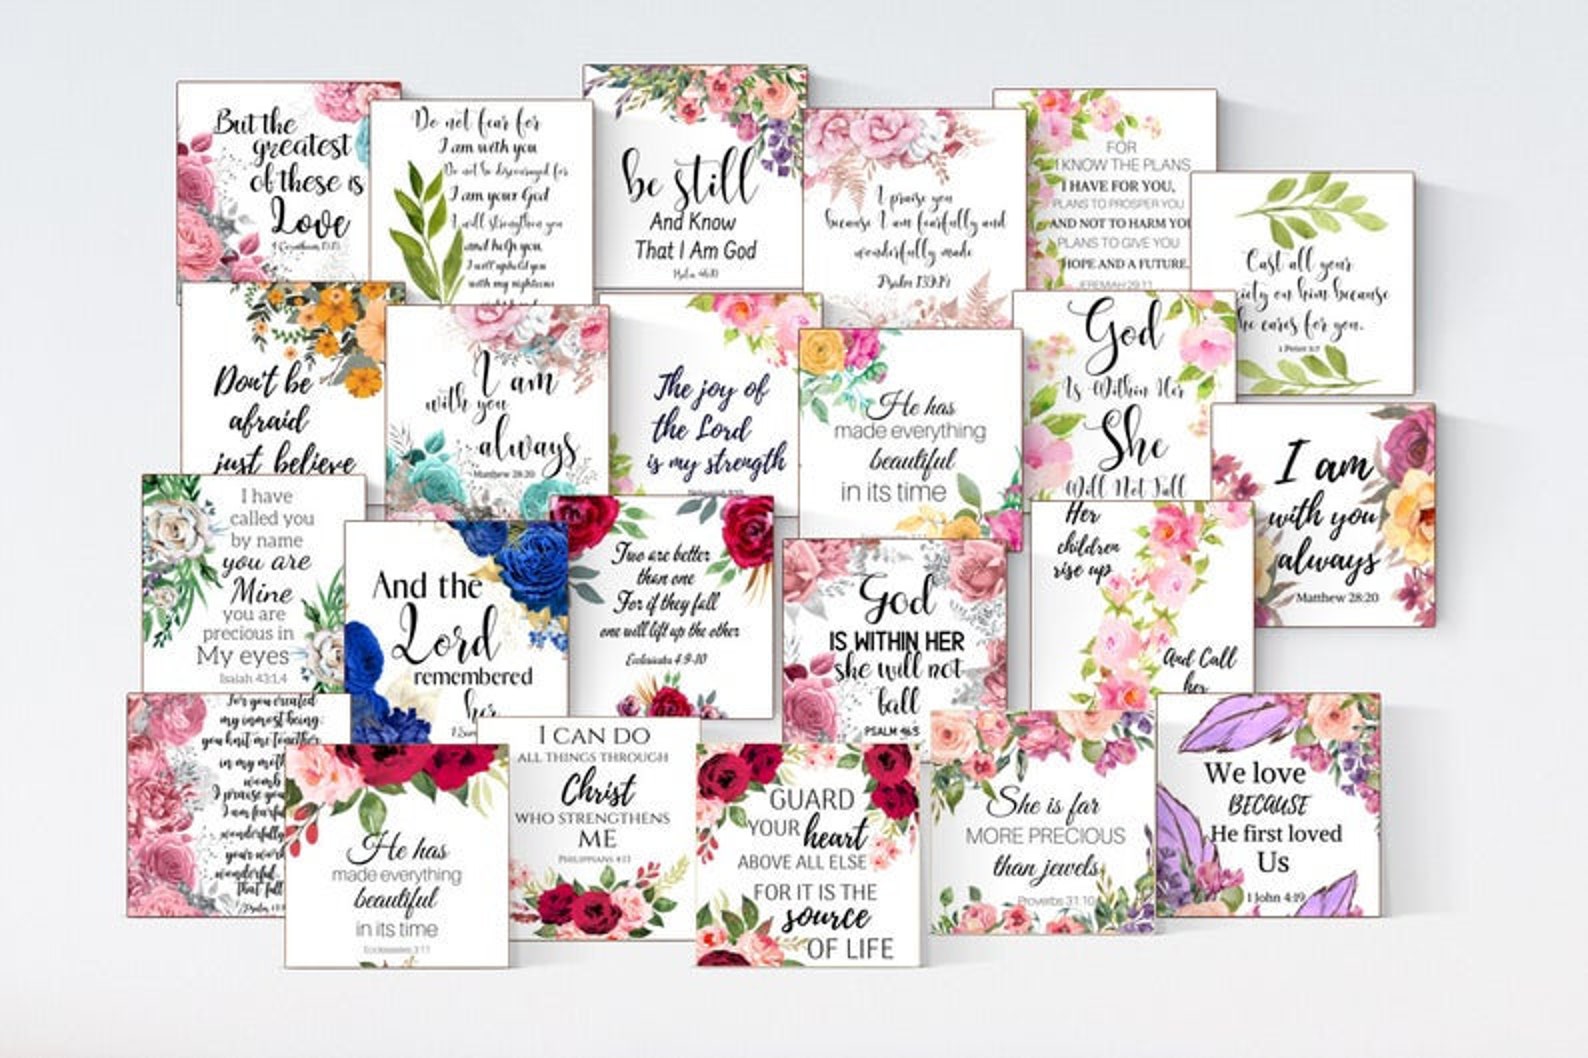 But the
greatest
of these is
Love
Do not fear for
I am with you
Do not be discouraged for
I am your God
I will strengthen you
and help you
I will uphold you
with my righteous
be still
And Know
That I Am God
I praise you
because I am fearfully and
wonderfully made
Psalm 139:14
FOR
I KNOW THE PLANS
I HAVE FOR YOU,
PLANS TO PROSPER YOU
AND NOT TO HARM YOU
PLANS TO GIVE YOU
HOPE AND A FUTURE.
JEREMIAH 29:11
Cast all your
on him because
he cares for you.
1 Peter 5:7
Don't be
afraid
just believe
I am
with you
always
Matthew 28:20
The joy of
the Lord
is my strength
He has
made everything
beautiful
in its time
God
Is Within Her
She
Will Not Fall
I am
with you
always
Matthew 28:20
I have
called you
by name
you are
Mine
you are
precious in
My eyes
Isaiah 43:1,4
And the
Lord
remembered
her
Two are better
than one
For if they fall
one will lift up the other
Ecclesiastes 4:9-10
God
IS WITHIN HER
she will not
fall
PSALM 46:5
Her
children
rise up
And Call
her
For you created
my inmost being;
you knit me together
in my
womb
I praise you
I am
wonderfully
your work
wonderful
that full
He has
made everything
beautiful
in its time
Ecclesiastes 3:11
I CAN DO
ALL THINGS THROUGH
Christ
WHO STRENGTHENS
ME
PHILIPPIANS 4:13
GUARD
YOUR heart
ABOVE ALL ELSE
FOR IT IS THE
source
OF LIFE
She is far
MORE PRECIOUS
than jewels
Proverbs 31:10
We love
BECAUSE
He first loved
Us
1 John 4:19